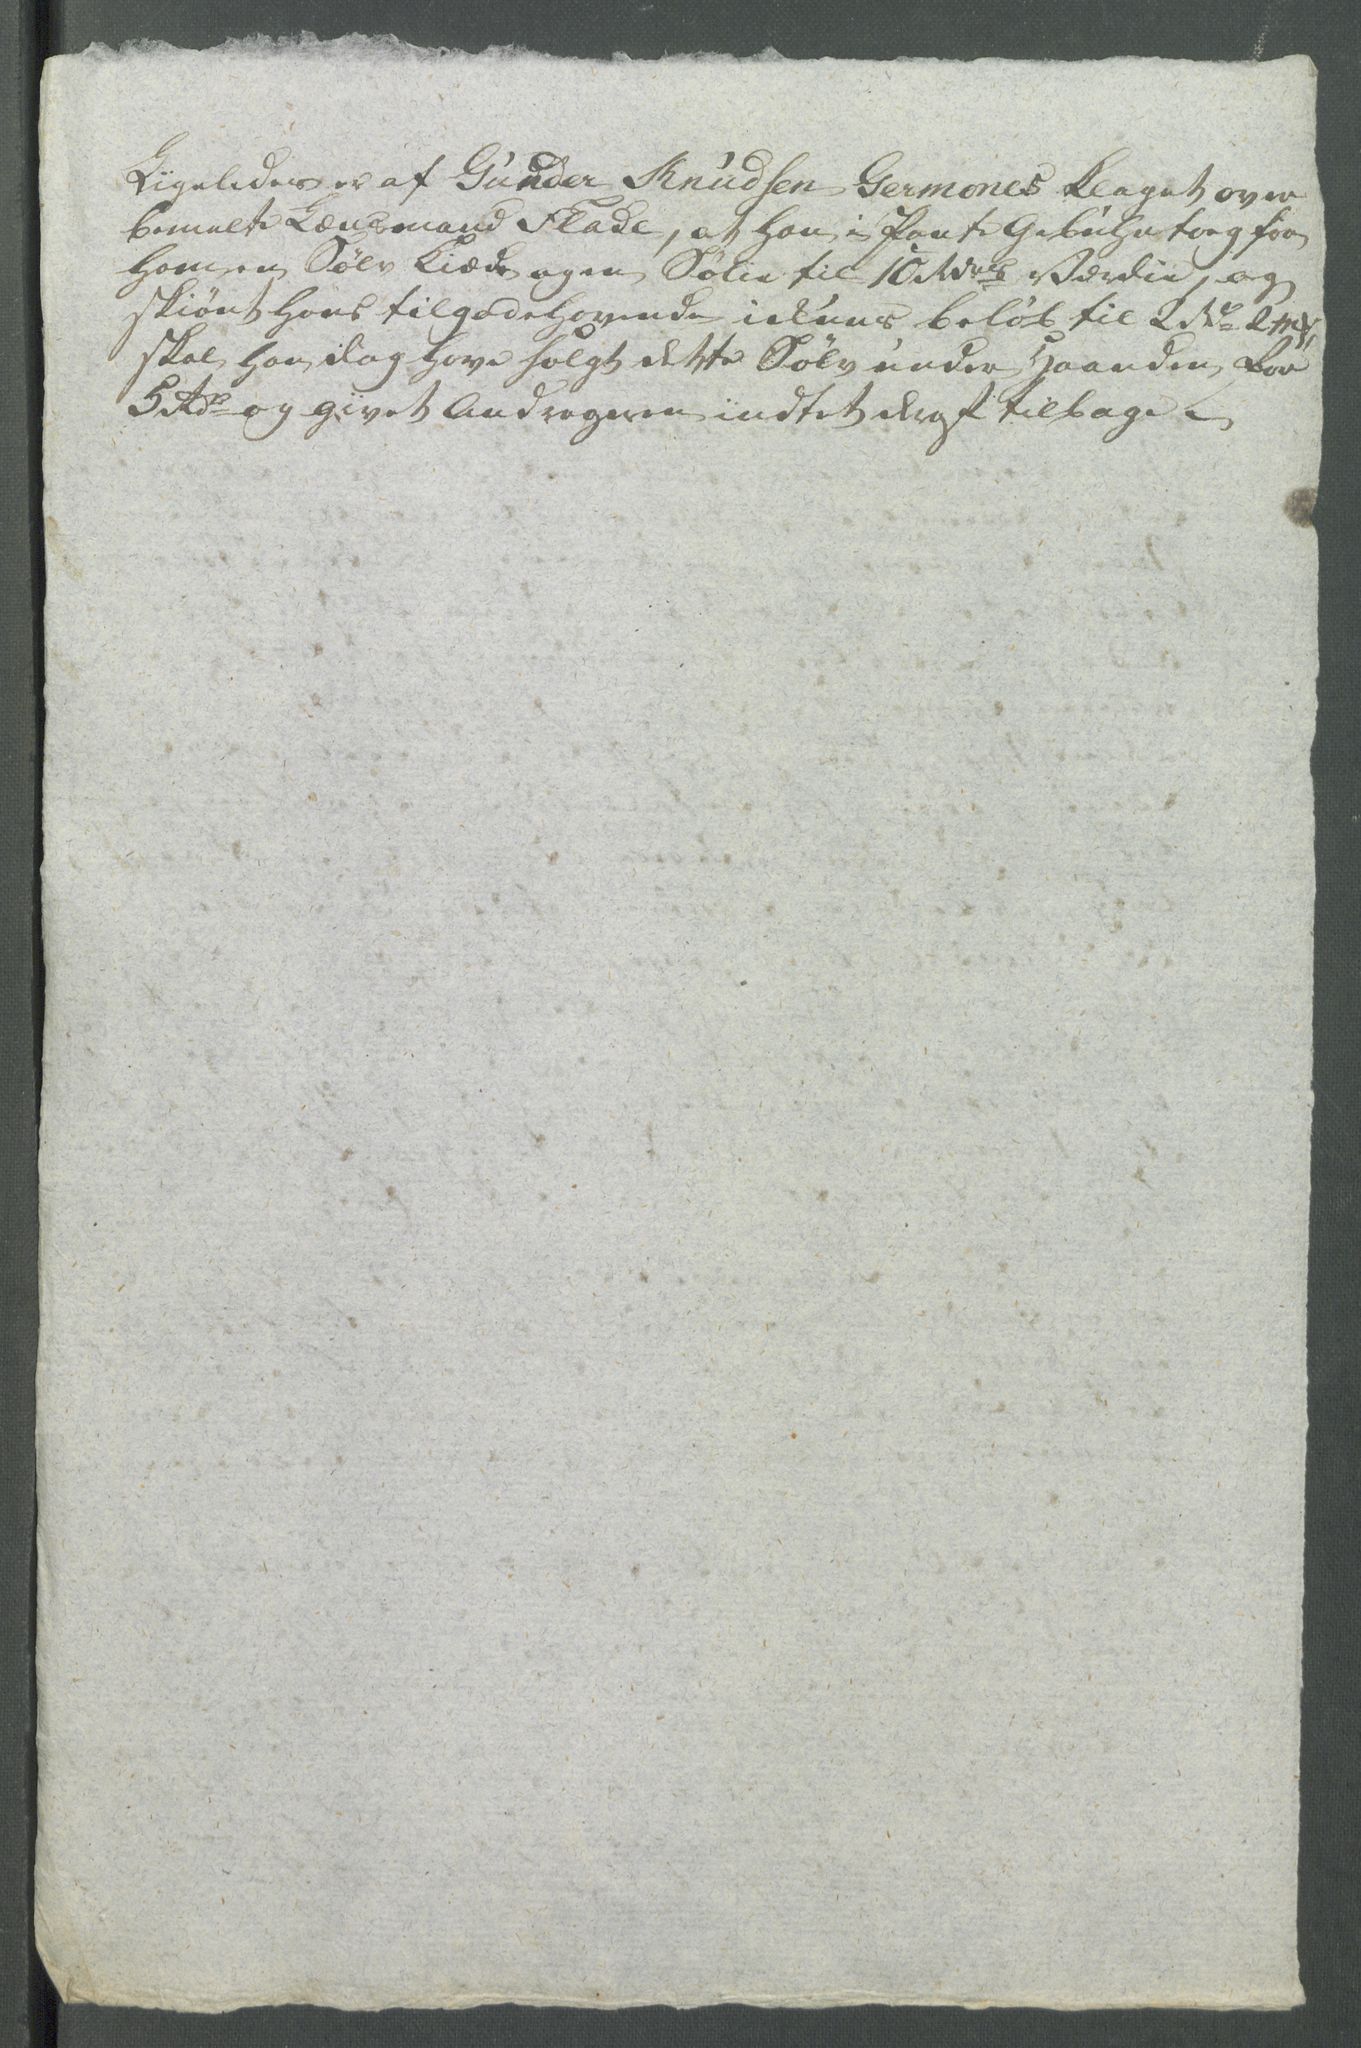 Ligeledes er af Gunder Knudsen Germones klaget over
bemelte Lensmand Flade, at han i Pante Gebühr tog fra
ham en Sølv Kiæde og en Sølie til 10 Rdrs Værdie, og
skiønt hans tilgodehavende ickuns beløb til 2 Rdr 2 mk,
skal han dog have solgt dette Sølv under Haanden for
5 Rdr og givet Andrageren indtet deraf tilbage